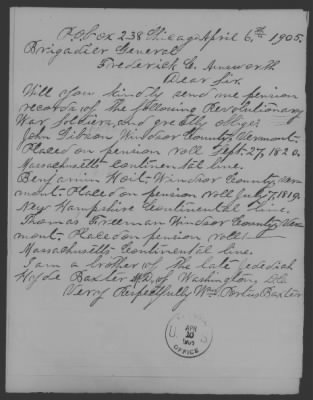 P.O. Box 238 Chicago April 6th 1905.
Brigadier General
Frederick C. Ainsworth
Dear Sir.
Will you kindly send me pension
records of the following Revolutionary
War soldiers, and greatly oblige.
John Gibson Windsor County, Vermont.
Placed on pension roll Sept. 27, 1820.
Massachusetts continental line.
Benjamin Hoit. Windsor County, Ver
mont. Placed on pension roll July 7, 1819.
New Hampshire Continental Line.
Thomas Freeman Windsor County, Ver
mont. Placed on pension roll
Massachusetts Continental line.
I am a brother of the late Jedediah
Hyde Baxter M.D. of Washington, D.C.
Very Respectfully Wm. Portus Baxter
U. S.
APR
10
1905
OFFICE